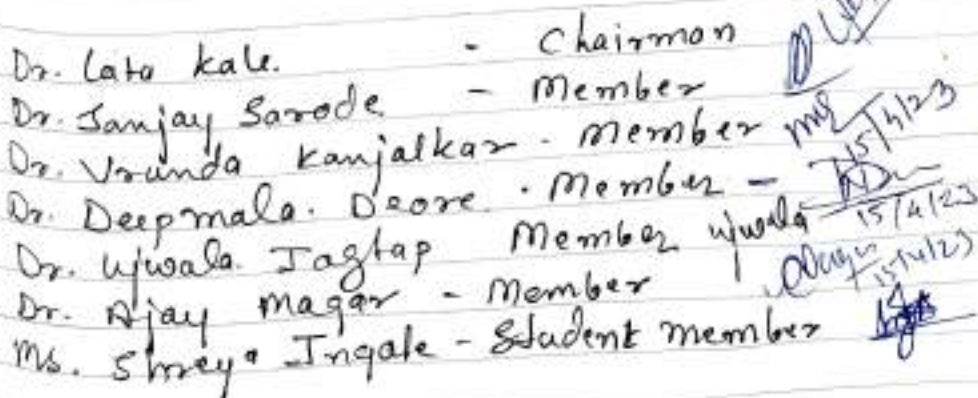 Dr. Lata Kale. - Chairman
Dr. Sanjay Sarode - Member
Dr. Vrunda Kanjalkar - Member 15/4/23
Dr. Deepmala. Deore. - Member - 15/4/23
Dr. Ujwala Jagtap Member ujwala 15/4/23
Dr. Ajay Magar - Member
Ms. Shreya Ingale - Student member